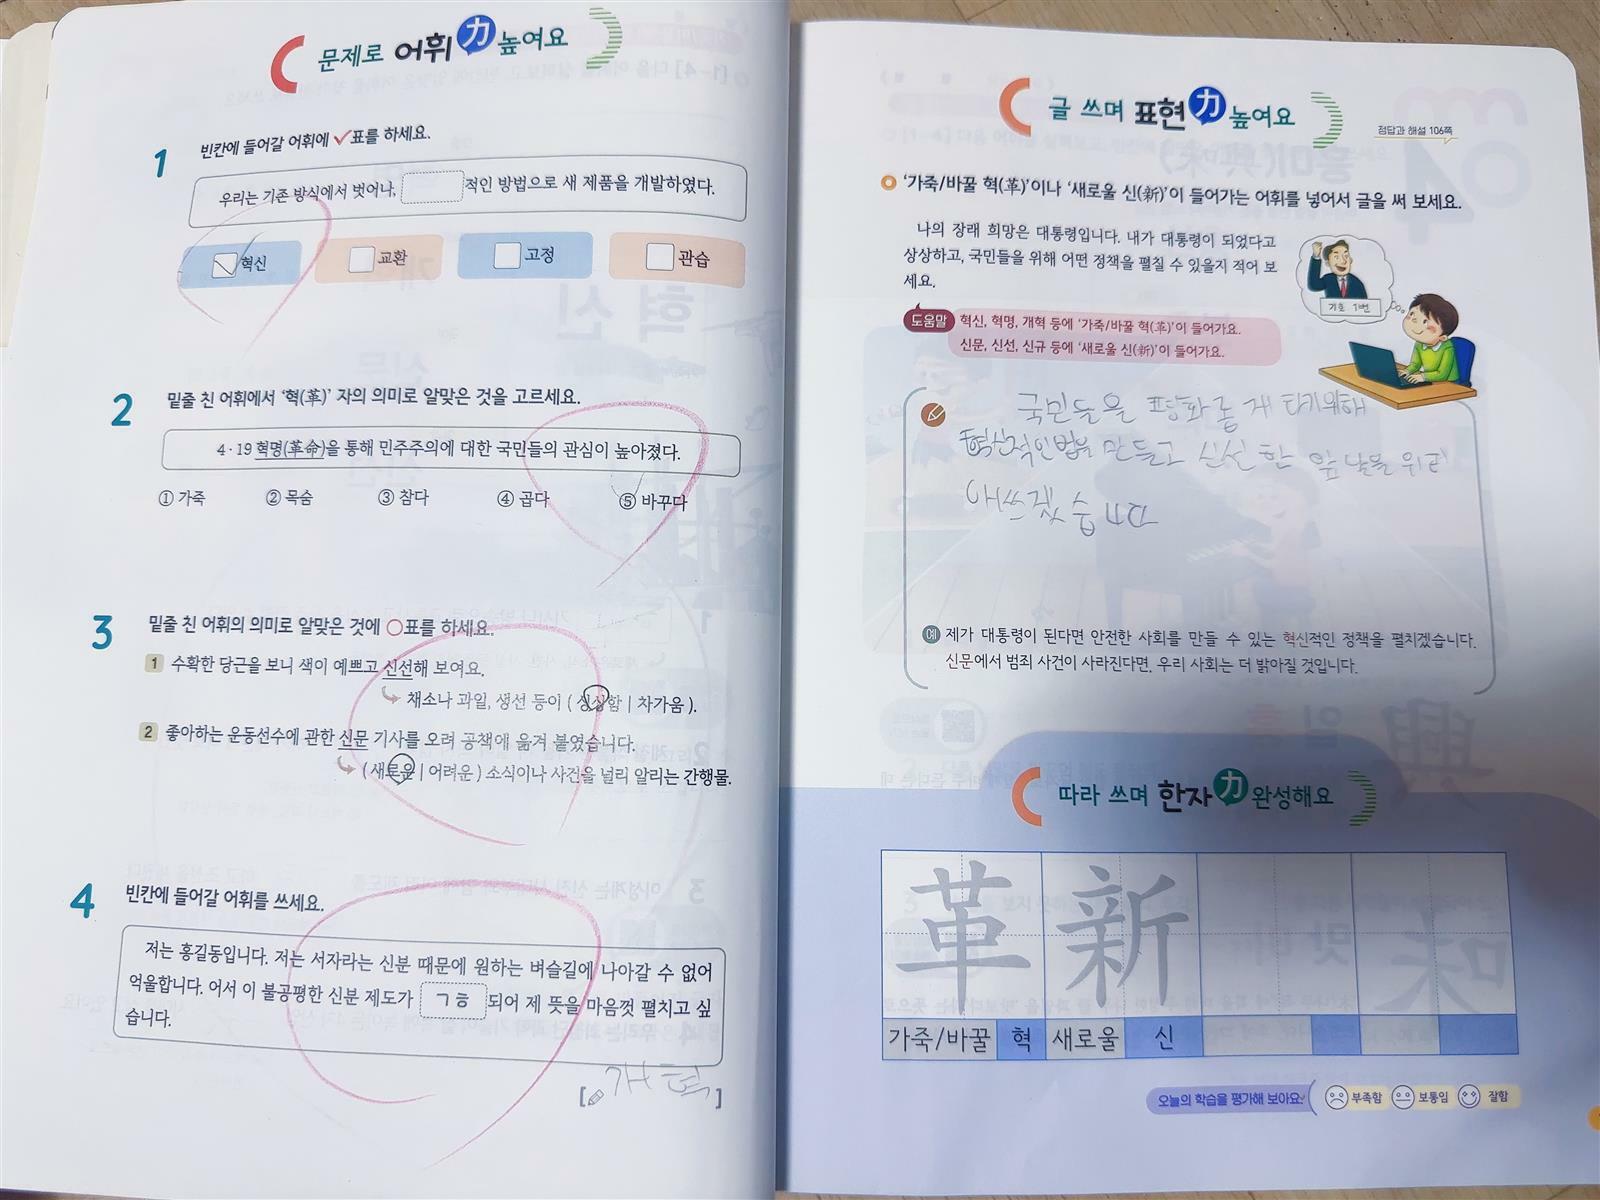 문제로 어휘 力 높여요
1 빈칸에 들어갈 어휘에 ✓표를 하세요.
우리는 기존 방식에서 벗어나, 적인 방법으로 새 제품을 개발하였다.
혁신 교환 고정 관습
2 밑줄 친 어휘에서 '혁(革)' 자의 의미로 알맞은 것을 고르세요.
4·19 혁명(革命)을 통해 민주주의에 대한 국민들의 관심이 높아졌다.
① 가죽 ② 목숨 ③ 참다 ④ 곱다 ⑤ 바꾸다
3 밑줄 친 어휘의 의미로 알맞은 것에 ○표를 하세요.
1 수확한 당근을 보니 색이 예쁘고 신선해 보여요.
채소나 과일, 생선 등이 ( 싱싱함 | 차가움 ).
2 좋아하는 운동선수에 관한 신문 기사를 오려 공책에 옮겨 붙였습니다.
( 새로운 | 어려운 ) 소식이나 사건을 널리 알리는 간행물.
4 빈칸에 들어갈 어휘를 쓰세요.
저는 홍길동입니다. 저는 서자라는 신분 때문에 원하는 벼슬길에 나아갈 수 없어
억울합니다. 어서 이 불공평한 신분 제도가 ㄱㅎ 되어 제 뜻을 마음껏 펼치고 싶
습니다.
[ 개혁 ]
글 쓰며 표현 力 높여요
정답과 해설 106쪽
'가죽/바꿀 혁(革)'이나 '새로울 신(新)'이 들어가는 어휘를 넣어서 글을 써 보세요.
나의 장래 희망은 대통령입니다. 내가 대통령이 되었다고
상상하고, 국민들을 위해 어떤 정책을 펼칠 수 있을지 적어 보
세요.
기호 1번
도움말 혁신, 혁명, 개혁 등에 '가죽/바꿀 혁(革)'이 들어가요.
신문, 신선, 신규 등에 '새로울 신(新)'이 들어가요.
국민들을 평화롭게
혁신적인법을 만들고 신선한 앞날을 위해
애쓰겠습니다
예 제가 대통령이 된다면 안전한 사회를 만들 수 있는 혁신적인 정책을 펼치겠습니다.
신문에서 범죄 사건이 사라진다면, 우리 사회는 더 밝아질 것입니다.
따라 쓰며 한자 力 완성해요
革 新
가죽/바꿀 혁 새로울 신
오늘의 학습을 평가해 보아요. 부족함 보통임 잘함